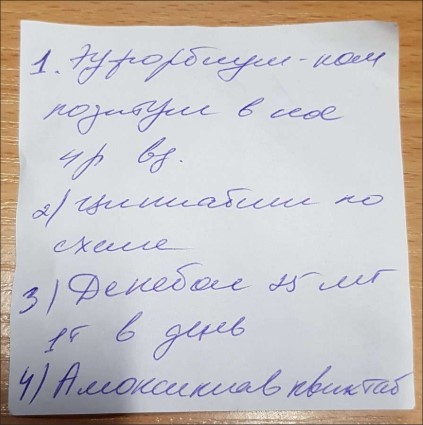 1. Эуфорбиум-ком
позитум в нос
4р вд.
2) Циннабсин по
схеме
3) Денебол 25 мг
1т в день
4) Амоксиклав квиктаб